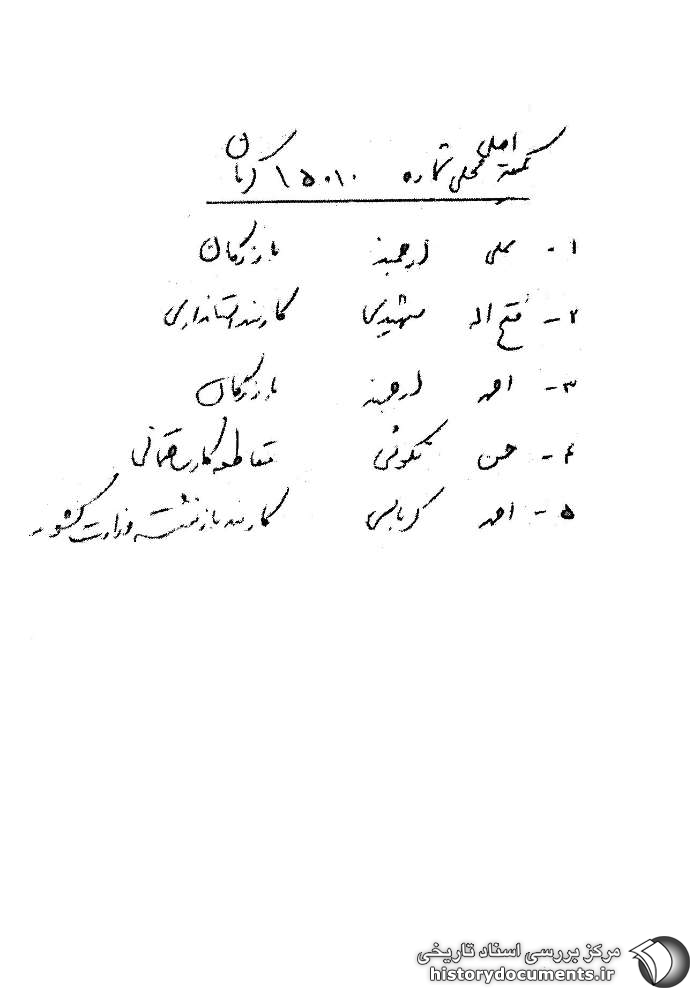 کمیته اصلی محلی شماره ۱۵۰۱۰ کرمان
۱- علی ارجمند بازرگان
۲- فتح اله شهیدی کارمند استانداری
۳- احمد ارجمند بازرگان
۴- حسن نکوئی مقاطعه کار ساختمانی
۵- احمد کرباسی کارمند بازنشسته وزارت کشور
مرکز بررسی اسناد تاریخی
historydocuments.ir